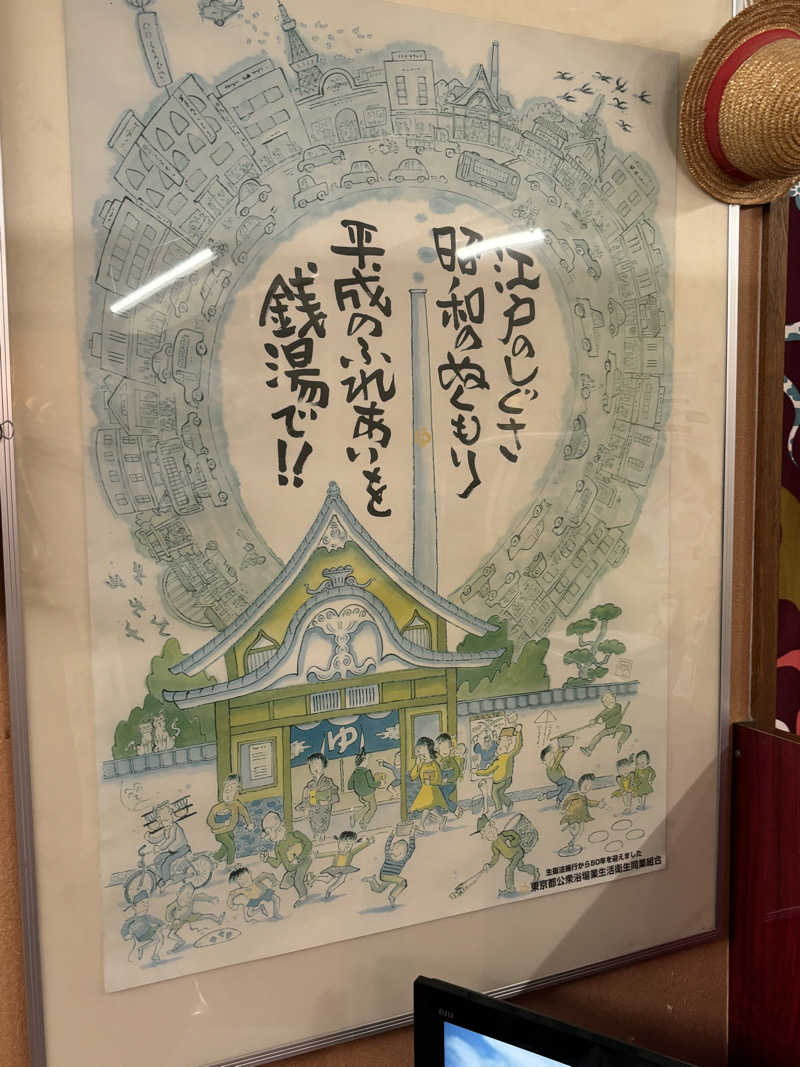 江戸のしぐさ
昭和のぬくもり
平成のふれあいを
銭湯で!!
ゆ
ゆ
ゆ
生衛法施行から50年を迎えました
東京都公衆浴場業生活衛生同業組合